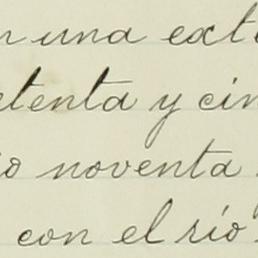 n una ext
etenta y cin
io noventa
con el río